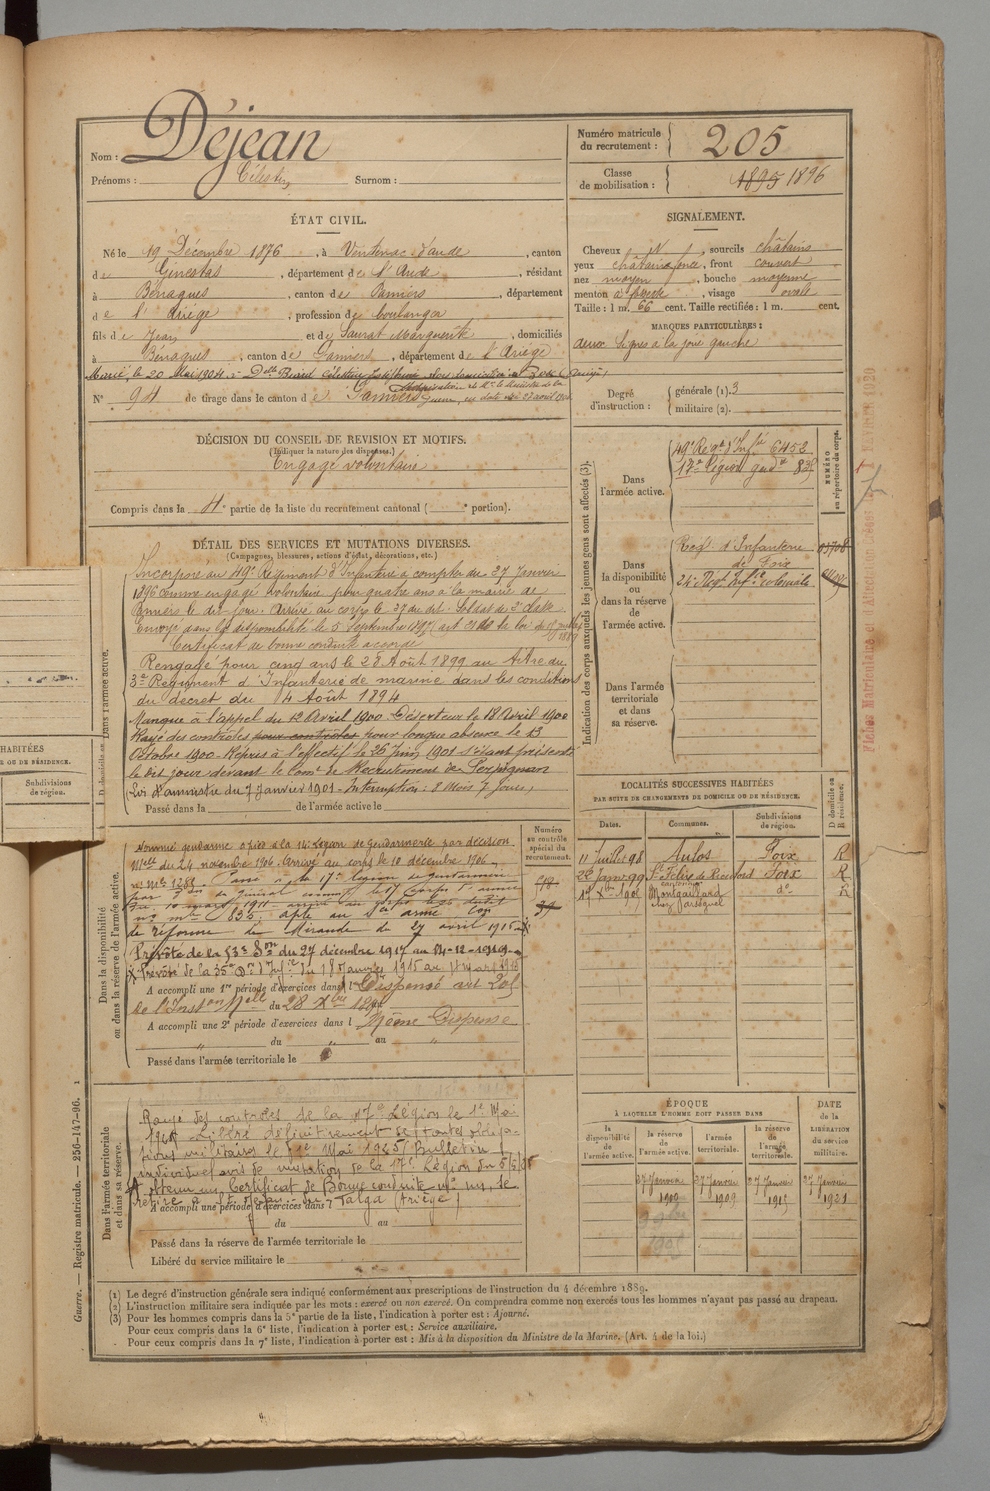 Nom : Déjean
Prénoms : Célestin Surnom :
Numéro matricule du recrutement : 205
Classe de mobilisation : 1895 1896
ÉTAT CIVIL.
Né le 19 Décembre 1876, à Ventenac d'aude, canton
de Ginestas, département de l'Aude, résidant
à Bénagues, canton de Pamiers, département
de l'Ariège, profession de boulanger
fils de Jean et de Saurat Marguerite, domiciliés
à Bénagues, canton de Pamiers, département de l'Ariège
Marié, le 20 Mai 1904, à Dlle
N° 94 de tirage dans le canton de Pamiers
SIGNALEMENT.
Cheveux N, sourcils châtains
yeux châtains foncé, front couvert
nez moyen, bouche moyenne
menton à fossette, visage ovale
Taille : 1 m. 66 cent. Taille rectifiée : 1 m. cent.
MARQUES PARTICULIÈRES :
deux signes à la joue gauche
Degré d'instruction : générale (1). 3
militaire (2).
DÉCISION DU CONSEIL DE REVISION ET MOTIFS.
(Indiquer la nature des dispenses.)
Engagé volontaire
Compris dans la 4e partie de la liste du recrutement cantonal ( e portion).
DÉTAIL DES SERVICES ET MUTATIONS DIVERSES.
(Campagnes, blessures, actions d'éclat, décorations, etc.)
Incorporé au 49e Régiment d'Infanterie à compter du 27 Janvier
1896 comme engagé volontaire pour quatre ans à la mairie de
Pamiers le dit jour. Arrivé au corps le 27 du dit. Soldat de 2e classe
Envoyé dans la disponibilité le 5 Septembre 1897
Certificat de bonne conduite accordé
Rengagé pour cinq ans le 28 Août 1899 au titre du
3e Régiment d'Infanterie de marine dans les conditions
du décret du 4 Août 1894
Manque à l'appel du 12 Avril 1900 Déserteur le 18 Avril 1900
Rayé des contrôles pour longue absence le 13
Octobre 1900 Repris à l'effectif le 26 Juin 1901 s'étant présenté
le dit jour devant le Comt de Recrutement de Perpignan
Loi d'amnistie du 7 Janvier 1901 - Interruption : 8 Mois 7 jours,
Passé dans la de l'armée active le
Nommé gendarme à pied à la 14e Légion de Gendarmerie par décision
Melle du 24 novembre 1906. Arrivé au corps le 10 décembre 1906
Passé à la 17e légion de gendarmerie
de réforme de Mirande du 27 avril 1915
Prévôté de la 53e Don du 27 décembre 1917 au
Prévôté de la 35e Don d'Infie du 18 Janvier 1915 au
A accompli une 1re période d'exercices dans l Dispensé art 201
de l'Inston Melle du 28 Xbre 1895
A accompli une 2e période d'exercices dans l Même Dispense
du " au "
Passé dans l'armée territoriale le
Rayé des contrôles de la 17e Légion le 1er Mai
Libéré définitivement de toutes obliga-
tions militaires le 1er Mai
individuel avis de mutation de la 17e Légion du
A obtenu un Certificat de Bonne conduite
retire à St Jean du Falga (Ariège)
A accompli une période d'exercices dans l
du au
Passé dans la réserve de l'armée territoriale le
Libéré du service militaire le
Dans l'armée active.
Dans la disponibilité ou dans la réserve de l'armée active.
Dans l'armée territoriale et dans sa réserve.
Numéro au contrôle spécial du recrutement.
Indication des corps auxquels les jeunes gens sont affectés (3).
NUMÉRO au répertoire du corps.
Dans l'armée active.
49e Regt d'Infie 6453
17e légion gend 835
Dans la disponibilité ou dans la réserve de l'armée active.
Regt d'Infanterie
de Foix
24e Regt Infie coloniale
Dans l'armée territoriale et dans sa réserve.
LOCALITÉS SUCCESSIVES HABITÉES
PAR SUITE DE CHANGEMENTS DE DOMICILE OU DE RÉSIDENCE.
Dates. Communes. Subdivisions de région. D domicile ou R résidence.
11 Juillet 98 Aulos Foix R
22 janv. 99 St Félix de Rieutord Foix R
Montgaillard do R
ÉPOQUE
À LAQUELLE L'HOMME DOIT PASSER DANS
la disponibilité de l'armée active.
la réserve de l'armée active.
l'armée territoriale.
la réserve de l'armée territoriale.
DATE de la LIBÉRATION du service militaire.
27 Janvier 1909 27 Janvier 1909 27 Janvier 1915 27 Janvier 1921
(1) Le degré d'instruction générale sera indiqué conformément aux prescriptions de l'instruction du 4 décembre 1889.
(2) L'instruction militaire sera indiquée par les mots : exercé ou non exercé. On comprendra comme non exercés tous les hommes n'ayant pas passé au drapeau.
(3) Pour les hommes compris dans la 5e partie de la liste, l'indication à porter est : Ajourné.
Pour ceux compris dans la 6e liste, l'indication à porter est : Service auxiliaire.
Pour ceux compris dans la 7e liste, l'indication à porter est : Mis à la disposition du Ministre de la Marine. (Art. 4 de la loi.)
Guerre. — Registre matricule. — 256-147-96.
HABITÉES
OU DE RÉSIDENCE.
Subdivisions de région.